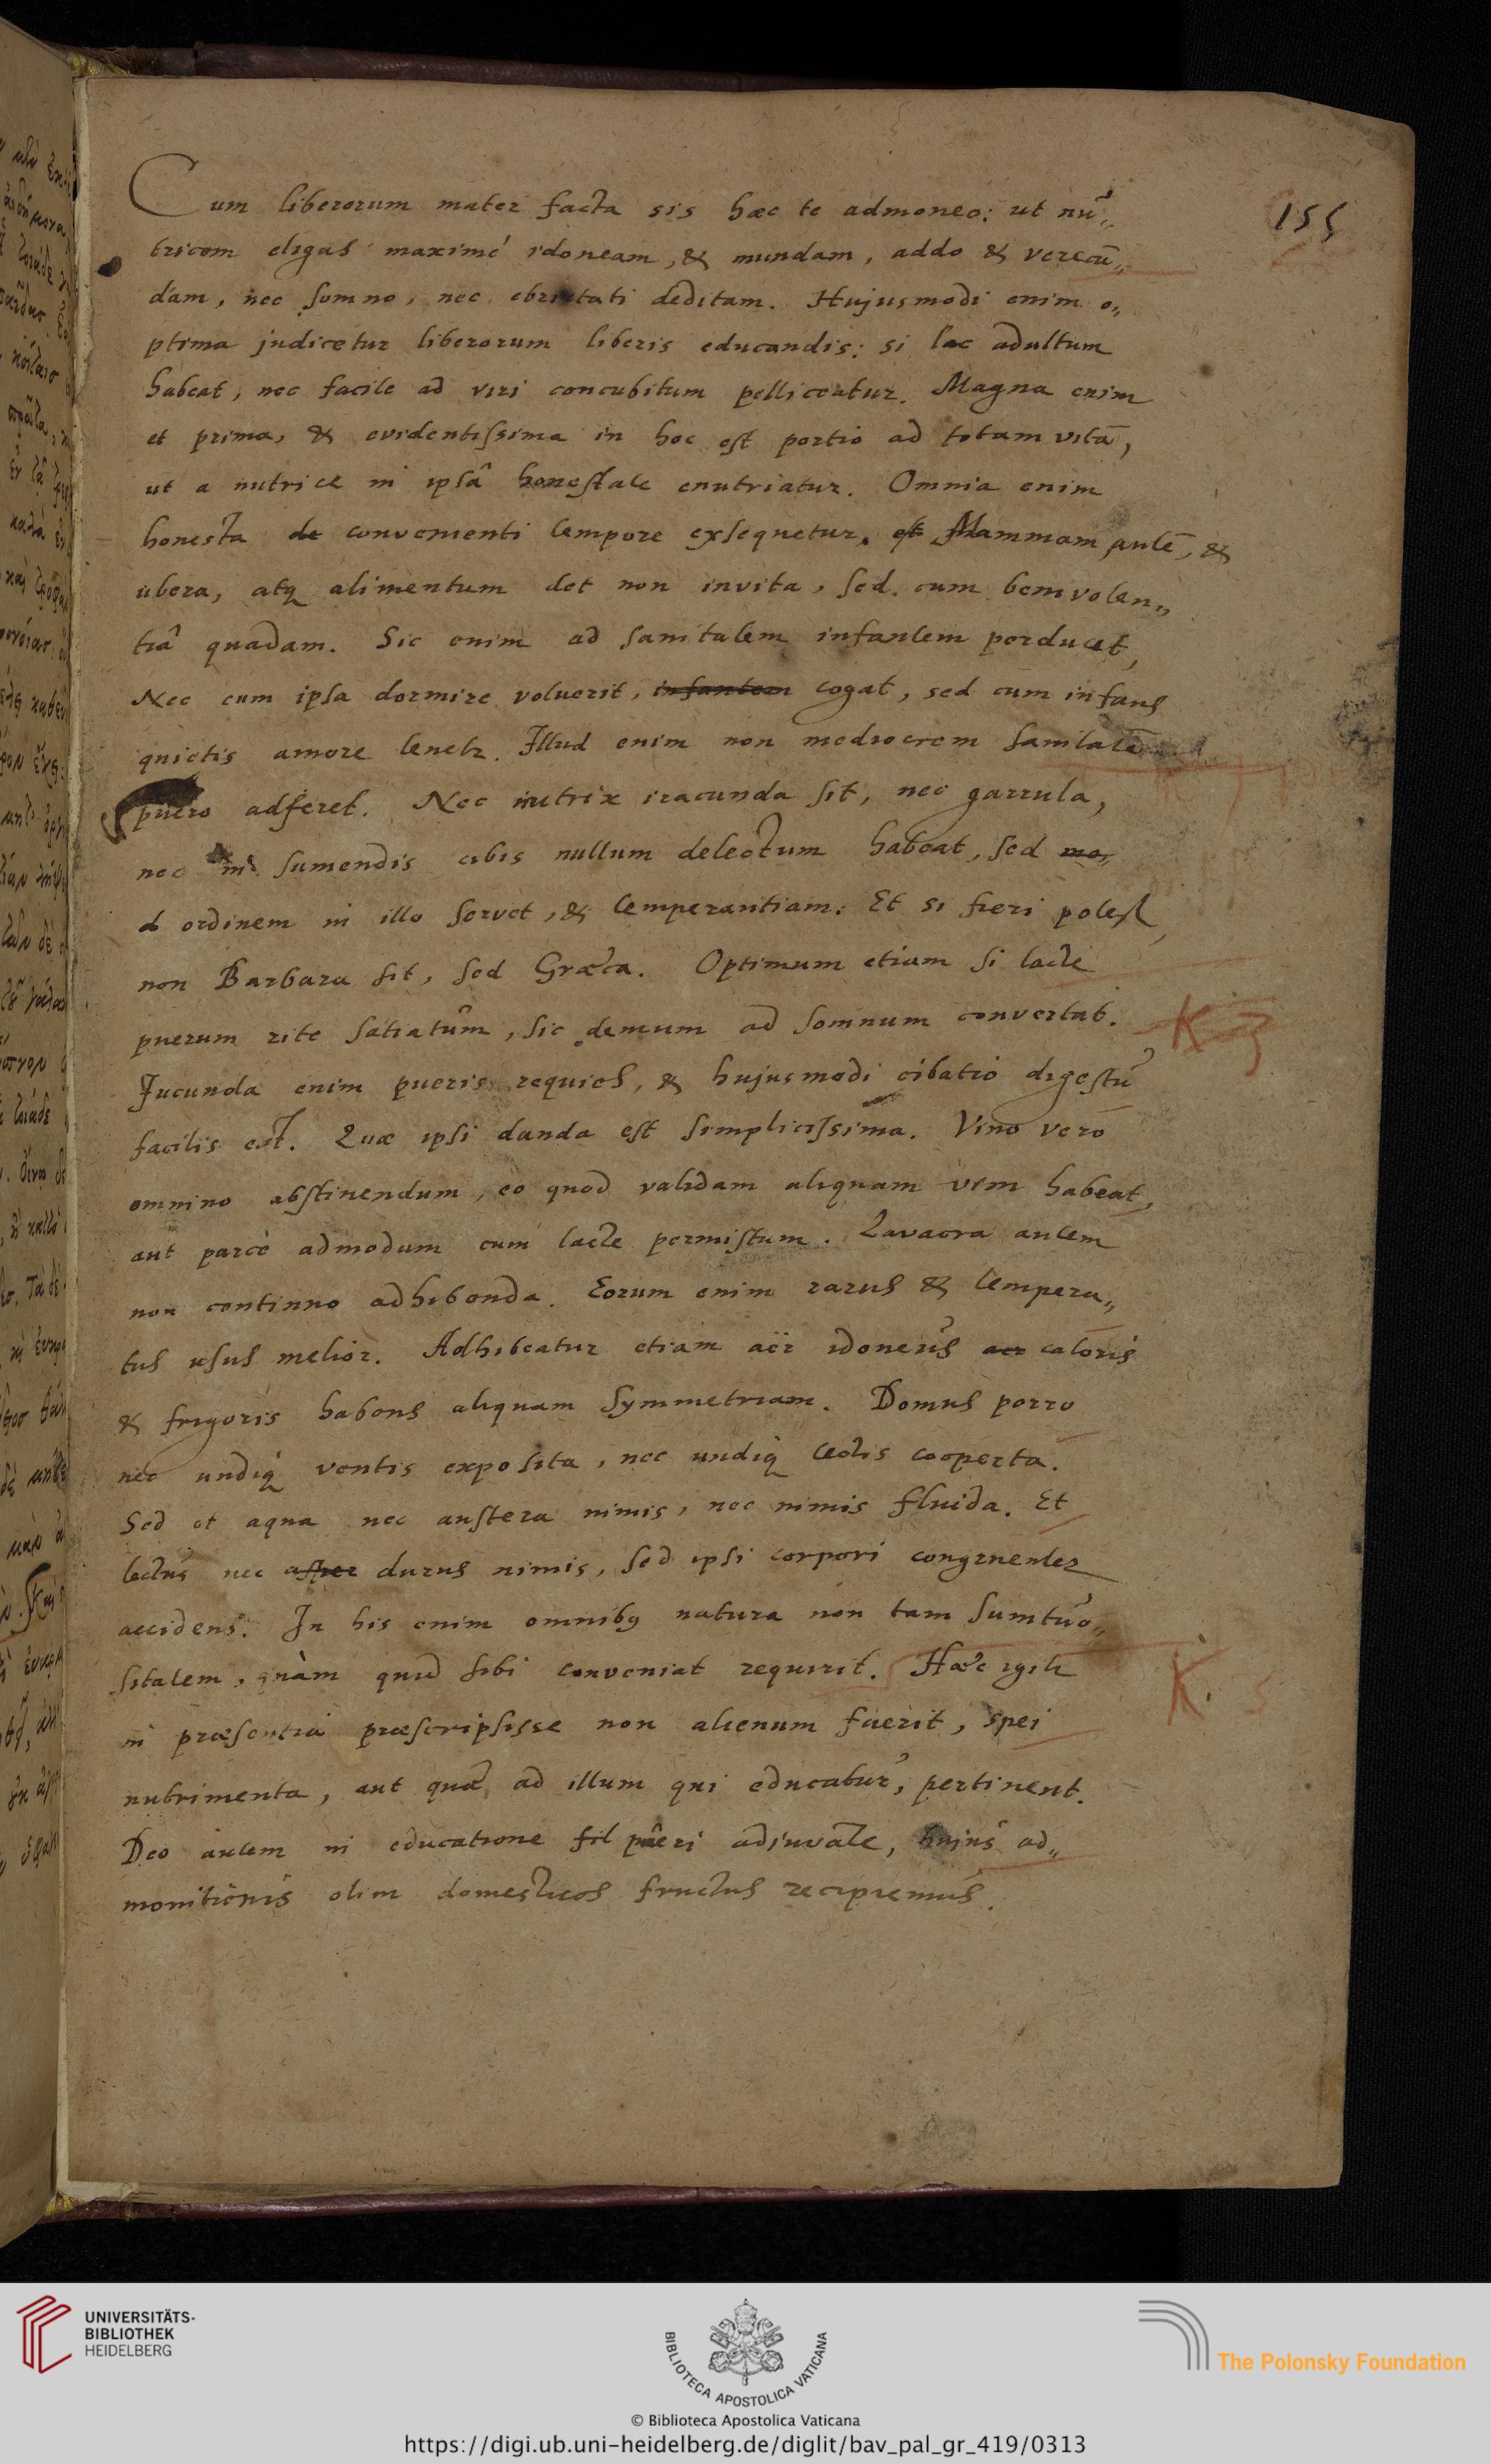 155
Cum liberorum mater facta sis hæc te admoneo: ut nu„
tricem eligas maximè idoneam, & mundam, addo & verecū„
dam, nec somno, nec ebrietati deditam. Hujusmodi enim o„
ptima judicetur liberorum liberis educandis: si lac adultum
habeat, nec facile ad viri concubitum pelliceatur. Magna enim
et prima, & evidentissima in hoc est portio ad totam vitā,
ut a nutrice in ipsâ honestate enutriatur. Omnia enim
honesta de convenienti tempore exsequetur. et Mammam autē, &
ubera, atq alimentum det non invita, sed cum benivolen„
tiâ quadam. Sic enim ad sanitatem infantem perducet,
Nec cum ipsa dormire voluerit, infantem cogat, sed cum infans
quietis amore tenetr. Illud enim non mediocrem sanitatē
puero adferet. Nec nutrix iracunda sit, nec garrula,
nec in sumendis cibis nullum delectum habeat, sed mo„
d ordinem in illo servet, & temperantiam: Et si fieri potest,
non Barbara sit, sed Græca. Optimum etiam si lacte
puerum rite satiatum, sic demum ad somnum convertat.
K
Jucunda enim pueris requies, & hujusmodi cibatio digestu
facilis est. Quæ ipsi danda est simplicissima. Vino vero
omnino abstinendum, eo quod validam aliquam vim habeat,
aut parcè admodum cum lacte permistum. Lavacra autem
non continuo adhibenda. Eorum enim rarus & tempera„
tus usus melior. Adhibeatur etiam aër idoneus aer caloris
& frigoris habens aliquam symmetriam. Domus porro
nec undiq ventis exposita, nec undiq tectis cooperta.
Sed et aqua nec austera nimis, nec nimis fluida. Et
lectus nec asper durus nimis, sed ipsi corpori congruenter
accidens. In his enim omnibq natura non tam sumtuo„
sitatem, quàm quid sibi conveniat requirit. Hæc igitr
K.
in præsentia præscripsisse non alienum fuerit, spei
nutrimenta, aut quæ ad illum qui educatur, pertinent.
Deo autem in educatione fil pueri adjuvāte, hujus ad„
monitionis olim domesticos fructus recipiemus.
UNIVERSITÄTS-
BIBLIOTHEK
HEIDELBERG
BIBLIOTECA APOSTOLICA VATICANA
The Polonsky Foundation
© Biblioteca Apostolica Vaticana
https://digi.ub.uni-heidelberg.de/diglit/bav_pal_gr_419/0313